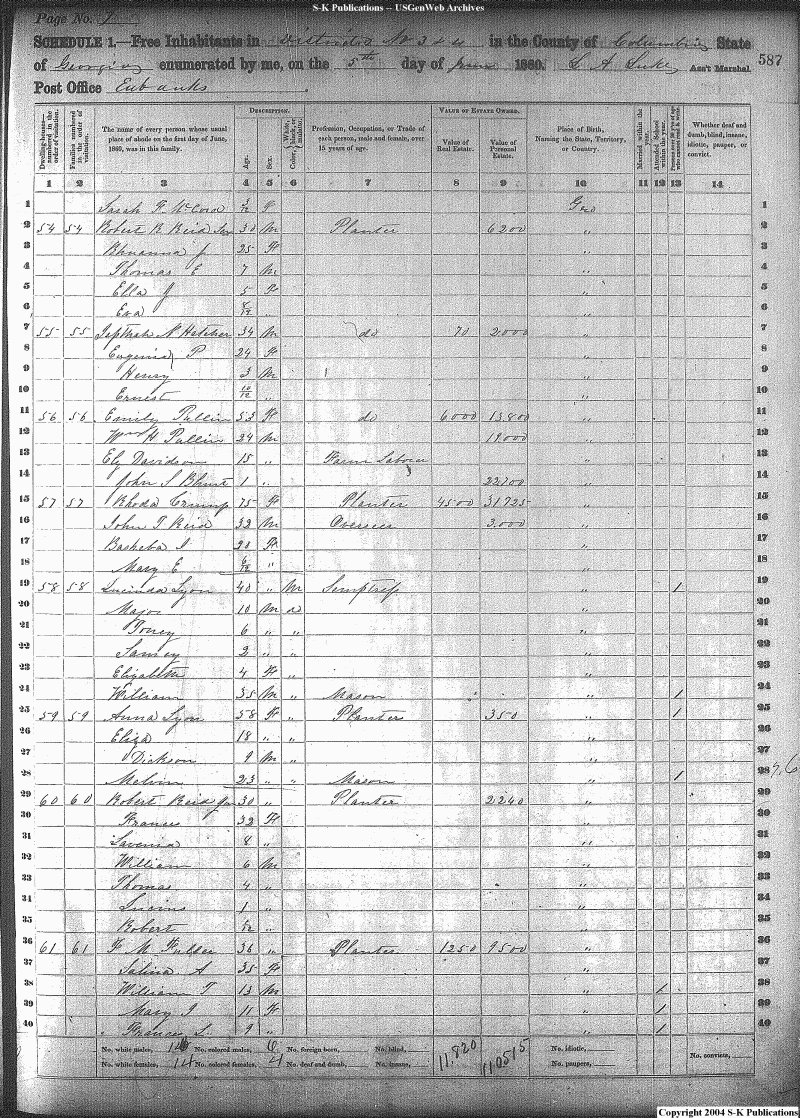 S-K Publications -- USGenWeb Archives
Page No. 7
SCHEDULE 1.—Free Inhabitants in Districts No 3 & 4 in the County of Columbia State
of Georgia enumerated by me, on the 5th day of June 1860. L A Luke Ass't Marshal. 587
Post Office Eubanks
Dwelling-houses— numbered in the order of visitation. Families numbered in the order of visitation. The name of every person whose usual place of abode on the first day of June, 1860, was in this family. DESCRIPTION. Age. Sex. Color, White, black, or mulatto. Profession, Occupation, or Trade of each person, male and female, over 15 years of age. VALUE OF ESTATE OWNED. Value of Real Estate. Value of Personal Estate. Place of Birth, Naming the State, Territory, or Country. Married within the year. Attended School within the year. Persons over 20 y'rs of age who cannot read & write. Whether deaf and dumb, blind, insane, idiotic, pauper, or convict.
1 2 3 4 5 6 7 8 9 10 11 12 13 14
1 Sarah F. McCord 3/12 F Geo 1
2 54 54 Robert B Reid Sr 30 M Planter 6200 " 2
3 J 25 F " 3
4 Thomas E 7 M " 4
5 Ella J 5 F " 5
6 Eva 8/12 " " 6
7 55 55 Jepthah N Hatcher 34 M do 70 2000 " 7
8 Eugenia P 24 F " 8
9 Henry 3 M " 9
10 Ernest 10/12 " " 10
11 56 56 Emily Pullin 53 F do 6000 13800 " 11
12 Wm H Pullin 24 M 19000 " 12
13 Ely Davidson 15 " Farm Laborer " 13
14 John S Blunt 1 " 22700 " 14
15 57 57 Rhoda Crump 75 F Planter 4500 31725 " 15
16 John T Reid 32 M Overseer 3000 " 16
17 Basheba 20 F " 17
18 Mary E 6/12 " " 18
19 58 58 Lucinda Lyon 40 " M Semptress " 1 19
20 Major 10 M do " 20
21 Toney 6 " " " 21
22 2 " " " 22
23 Elizabeth 4 F " " 23
24 William 35 M " Mason " 1 24
25 59 59 Anna Lyon 58 F " Planter 350 " 1 25
26 Eliza 18 " " " 26
27 Dickson 9 M " " 27
28 Melvin 23 " " Mason " 1 28
29 60 60 Robert Reid Jr 30 " Planter 2240 " 29
30 Frances 32 F " 30
31 Lavenia 8 " " 31
32 William 6 M " 32
33 Thomas 4 " " 33
34 Lucius 1 " " 34
35 Robert " " 35
36 61 61 F M Fuller 36 " Planter 1250 9500 " 36
37 Salina A 35 F " 37
38 William T 13 M " 1 38
39 Mary J 11 F " 1 39
40 Frances L 9 " " 1 40
No. white males, No. colored males, 6 No. foreign born, No. blind, 11,820 110515 No. idiotic, No. convicts,
No. white females, 14 No. colored females, 4 No. deaf and dumb, No. insane, No. paupers,
Copyright 2004 S-K Publications